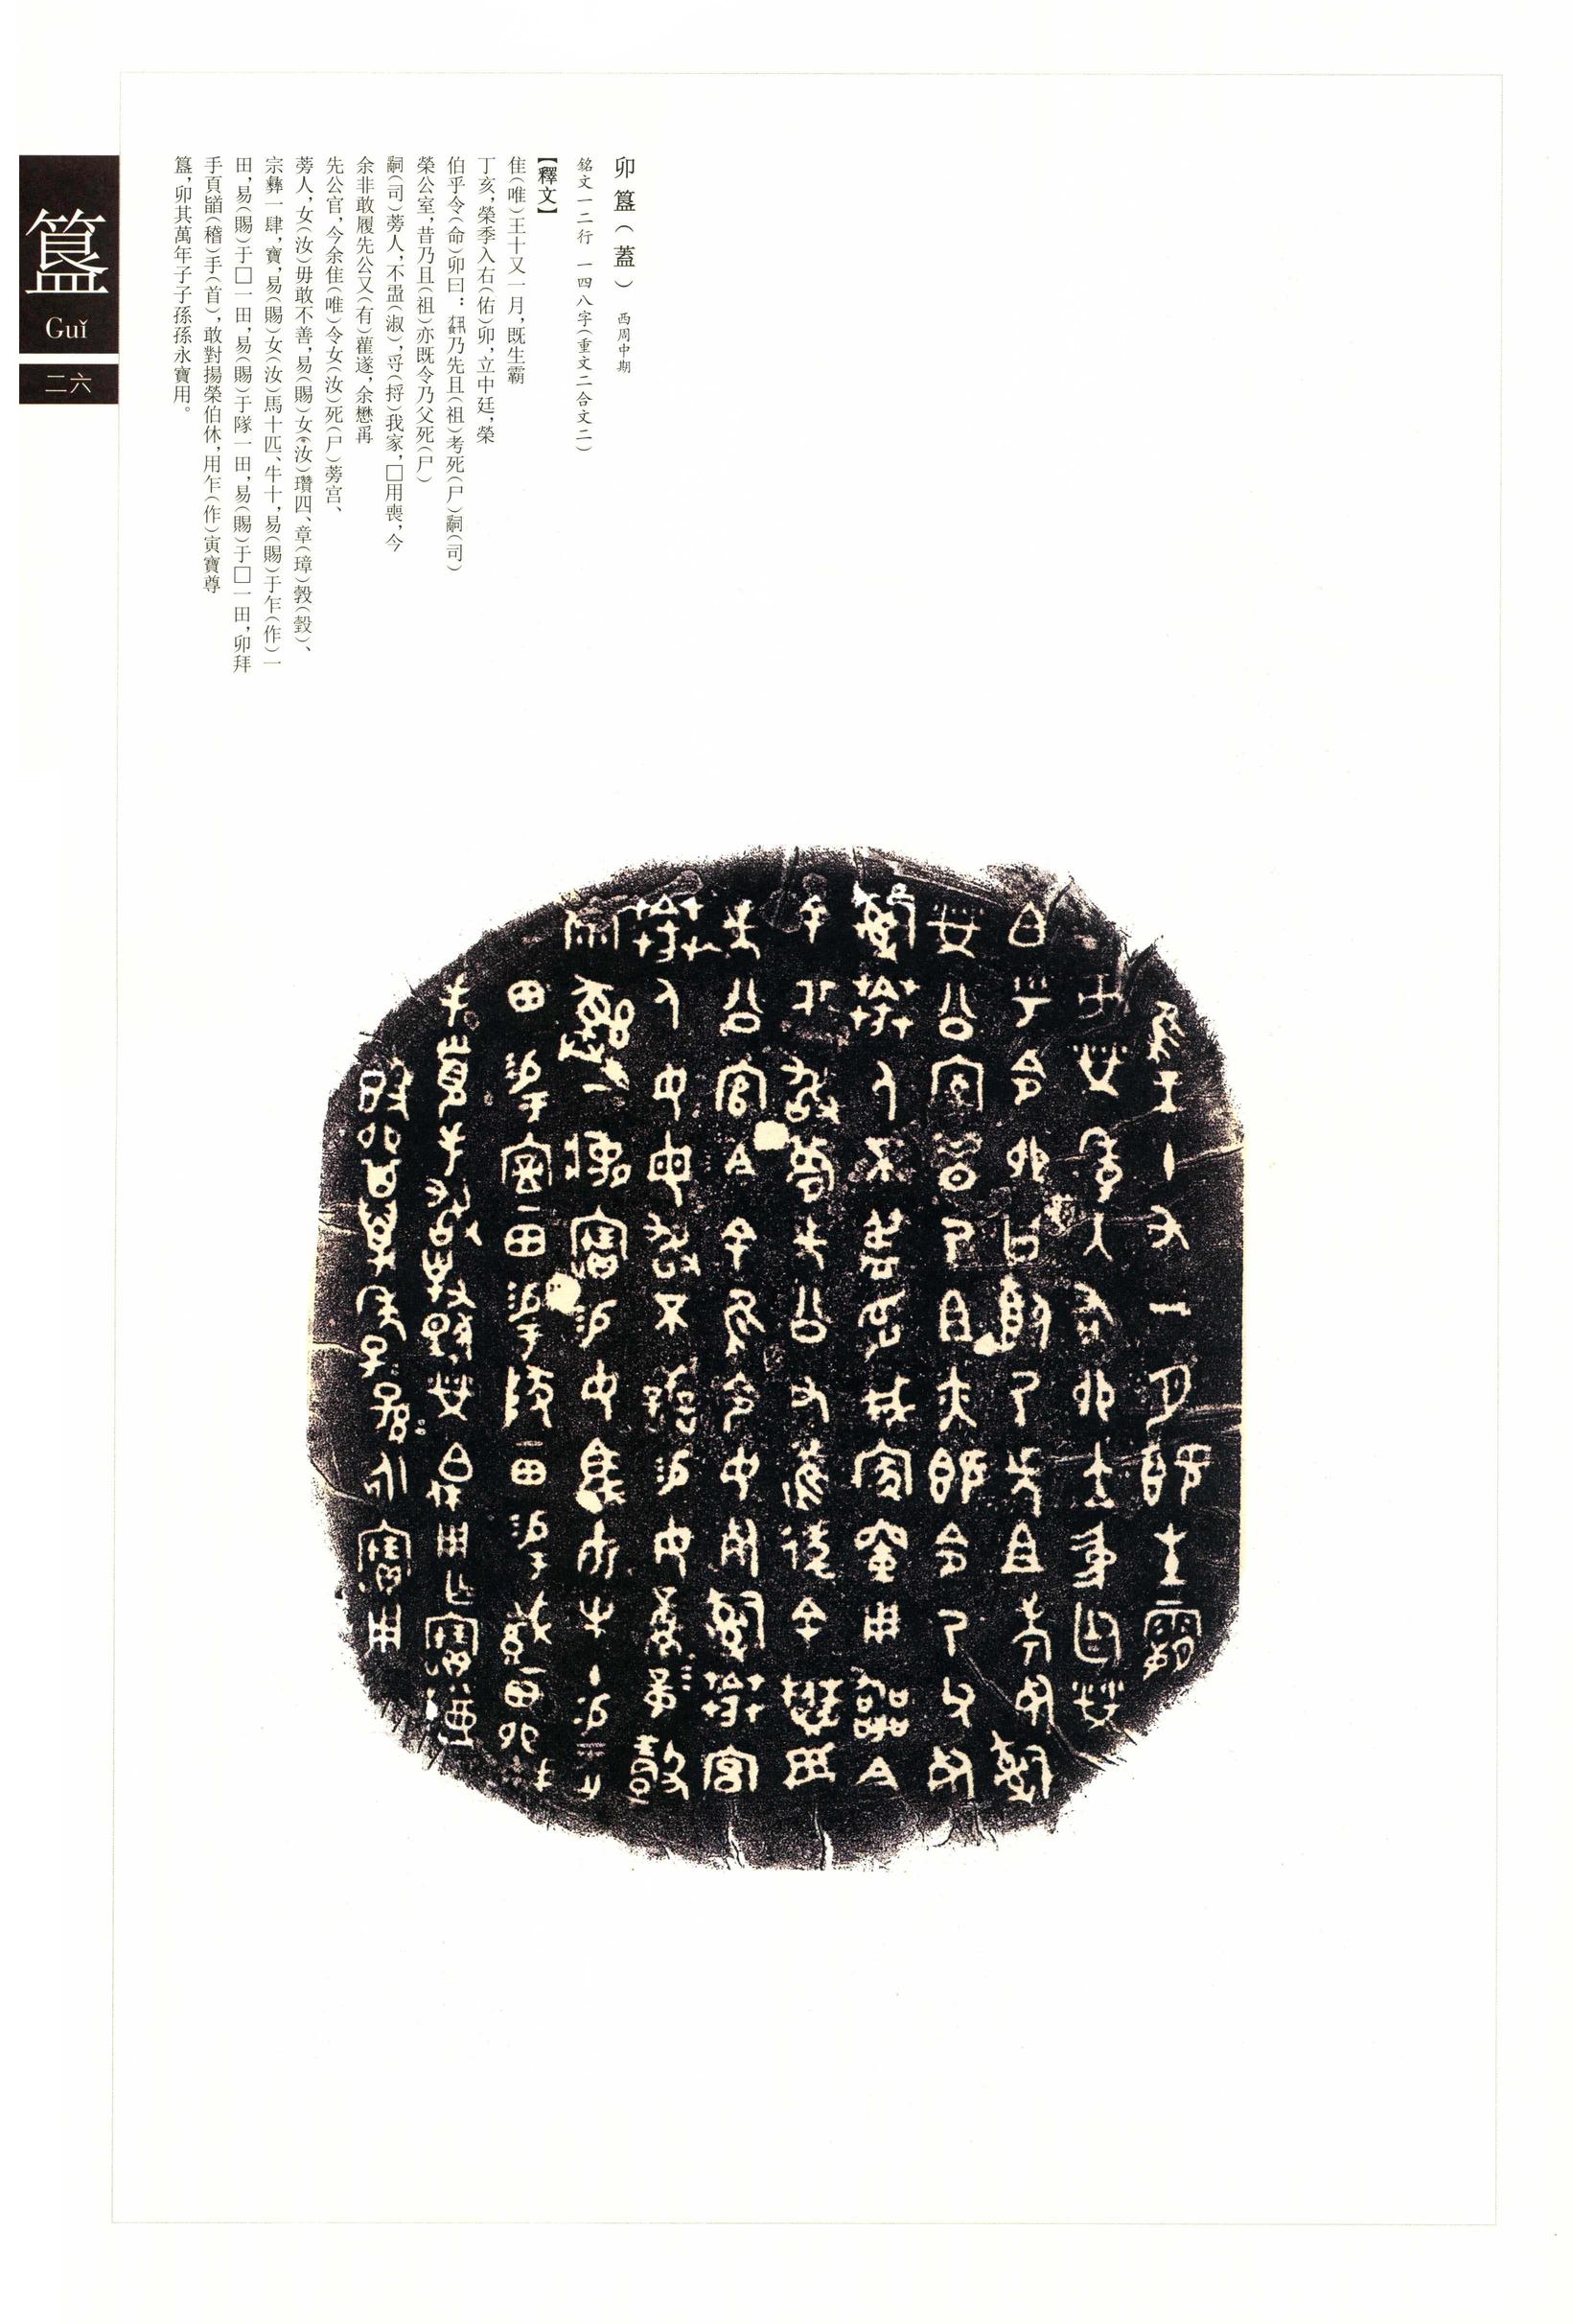 卯簋（蓋） 西周中期
銘文一二行 一四八字（重文二合文二）
【釋文】
隹（唯）王十又一月，既生霸
丁亥，榮季入右（佑）卯，立中廷，榮
伯乎令（命）卯曰：乃先且（祖）考死（尸）嗣（司）
榮公室，昔乃且（祖）亦既令乃父死（尸）
嗣（司）莠人，不盄（淑），寽（捋）我家，□用喪，今
余非敢履先公又（有）雚遂，余懋爯
先公官，今余隹（唯）令女（汝）死（尸）莠宫、
莠人，女（汝）毋敢不善，易（賜）女（汝）瓚四、章（璋）瑴（瑴）、
宗彝一肆，寶，易（賜）女（汝）馬十匹、牛十，易（賜）于乍（作）一
田，易（賜）于□一田，易（賜）于隊一田，易（賜）于□一田，卯拜
手頁䭫（稽）手（首），敢對揚榮伯休，用乍（作）寅寶尊
簋，卯其萬年子子孫孫永寶用。
簋
Guǐ
二六